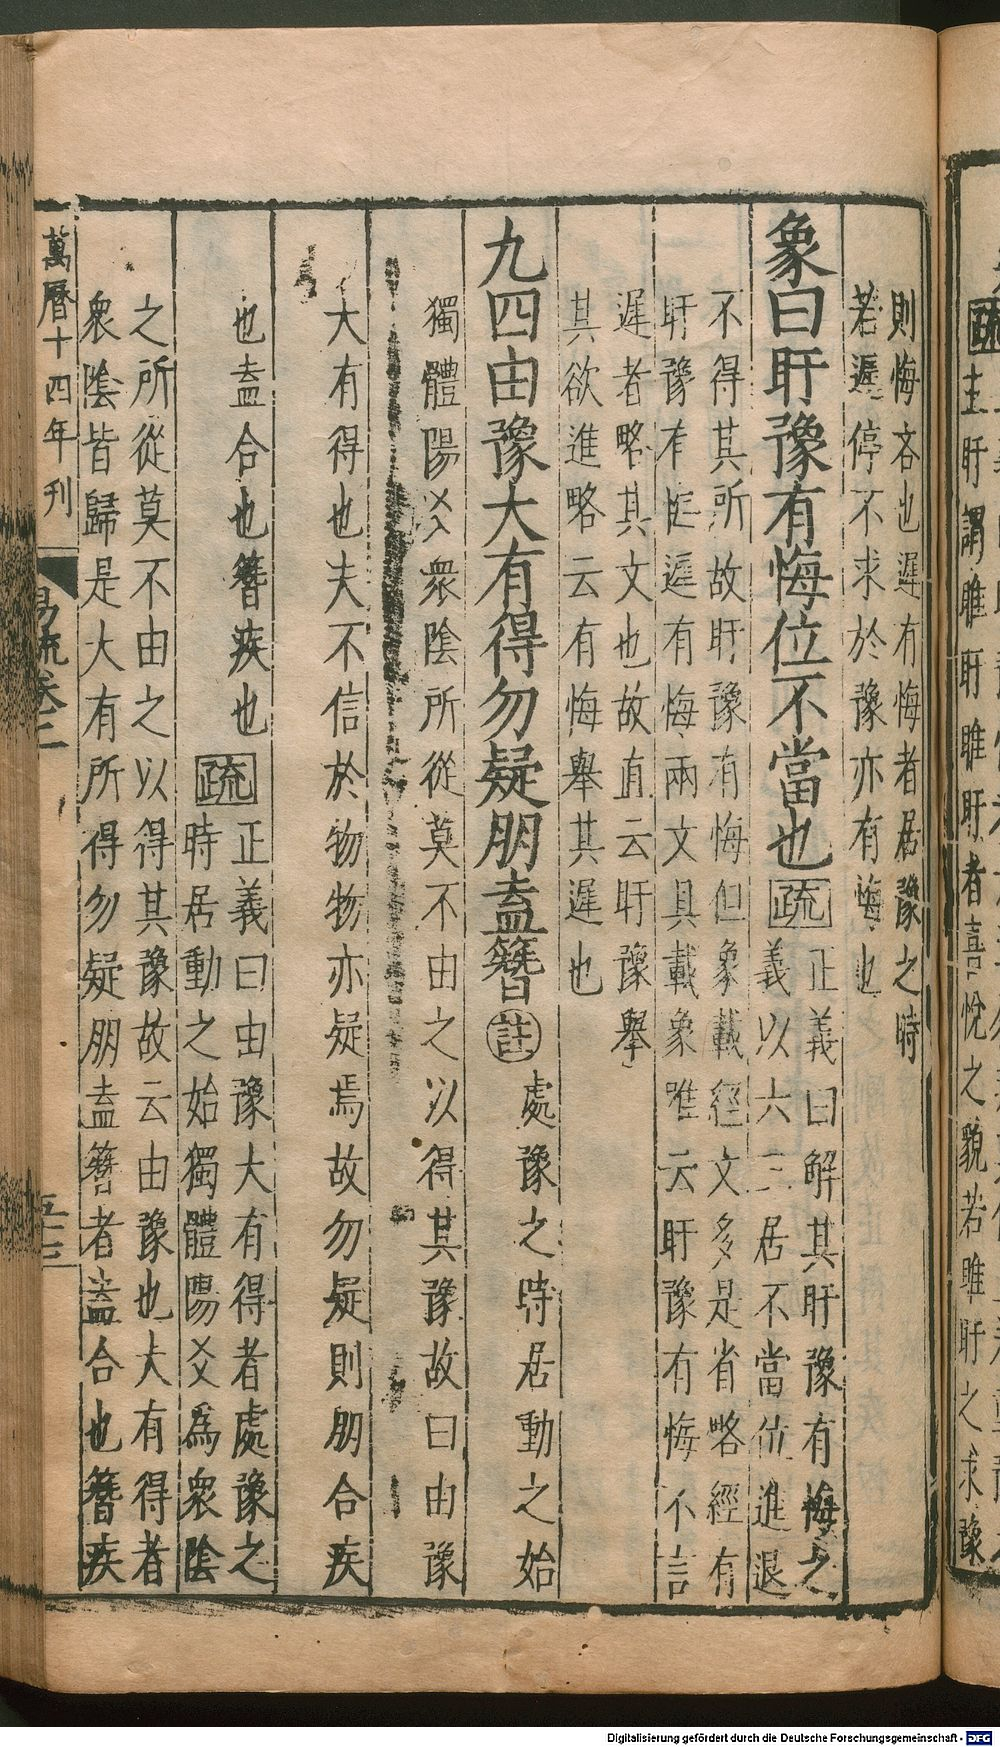 則悔吝也遲有悔者居豫之時
若遲停不求於豫亦有悔也
象曰盱豫有悔位不當也疏
正義曰解其盱豫有悔之
義以六三居不當位進退
不得其所故盱豫有悔但象載經文多是省略經有
盱豫有悔遲有悔兩文具載象唯云盱豫有悔不言
遲者略其文也故直云盱豫舉
其欲進略云有悔舉其遲也
九四由豫大有得勿疑朋盍簪註
處豫之時居動之始
獨體陽爻衆陰所從莫不由之以得其豫故曰由豫
大有得也夫不信於物物亦疑焉故勿疑則朋合疾
也盍合也簪疾也疏
正義曰由豫大有得者處豫之
時居動之始獨體陽爻爲衆陰
之所從莫不由之以得其豫故云由豫也大有得者
衆陰皆歸是大有所得勿疑朋盍簪者盍合也簪疾
萬曆十四年刊 易疏卷二 五三
疏
主盱謂睢盱睢盱者喜悅之貌若睢盱之求豫
Digitalisierung gefördert durch die Deutsche Forschungsgemeinschaft - DFG